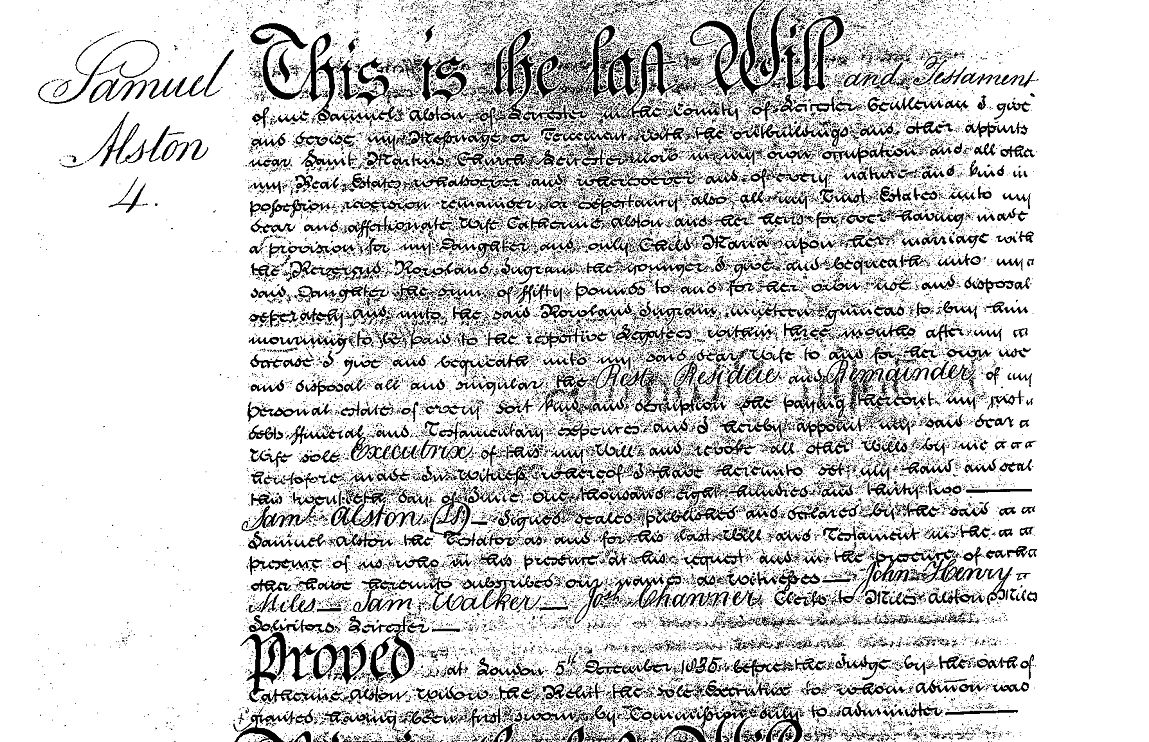 Samuel
Alston
4.
This is the last Will and Testament
of me Samuel Alston of Leicester in the County of Leicester Gentleman I give
and devise my Messuage or Tenement with the outbuildings and other appurts
near Saint Martins Church Leicester now in my own occupation and all other
my Real Estates whatsoever and wheresoever and of every nature and kind in
possession reversion remainder or expectancy also all my Trust Estates unto my
dear and affectionate Wife Catherine Alston and her heirs for ever having made
a provision for my Daughter and only Child Maria upon her marriage with
the Reverend Rowland Ingram the younger I give and bequeath unto my
said Daughter the sum of ffifty pounds to and for her own use and disposal
seperately and unto the said Rowland Ingram nineteen guineas to buy him
mourning to be paid to the respective Legatees within three months after my
decease I give and bequeath unto my said dear Wife to and for her own use
and disposal all and singular the Rest Residue and Remainder of my
personal estate of every sort kind and description she paying thereout my just
debts ffuneral and Testamentary expences and I hereby appoint my said dear
Wife sole Executrix of this my Will and revoke all other Wills by me
heretofore made In Witness whereof I have hereunto set my hand and seal
this twentieth day of June one thousand eight hundred and thirty two
Saml. Alston (LS) Signed sealed published and declared by the said
Samuel Alston the Testator as and for his last Will and Testament in the
presence of us who in his presence at his request and in the presence of each
other have hereunto subscribed our names as witnesses John Henry
Miles Sam Walker Josh. Channer Clerks to Miles Alston & Miles
Solicitors Leicester
Proved at London 5th December 1835 before the Judge by the Oath of
Catherine Alston widow the Relict the sole Executrix to whom admon was
granted having been first sworn by Commission duly to administer